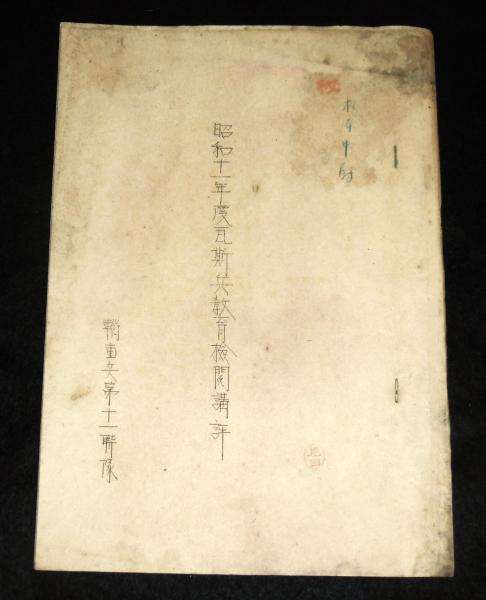 秘
木下中尉
昭和十一年度瓦斯兵教育検閲講評
輜重兵第十一聯隊